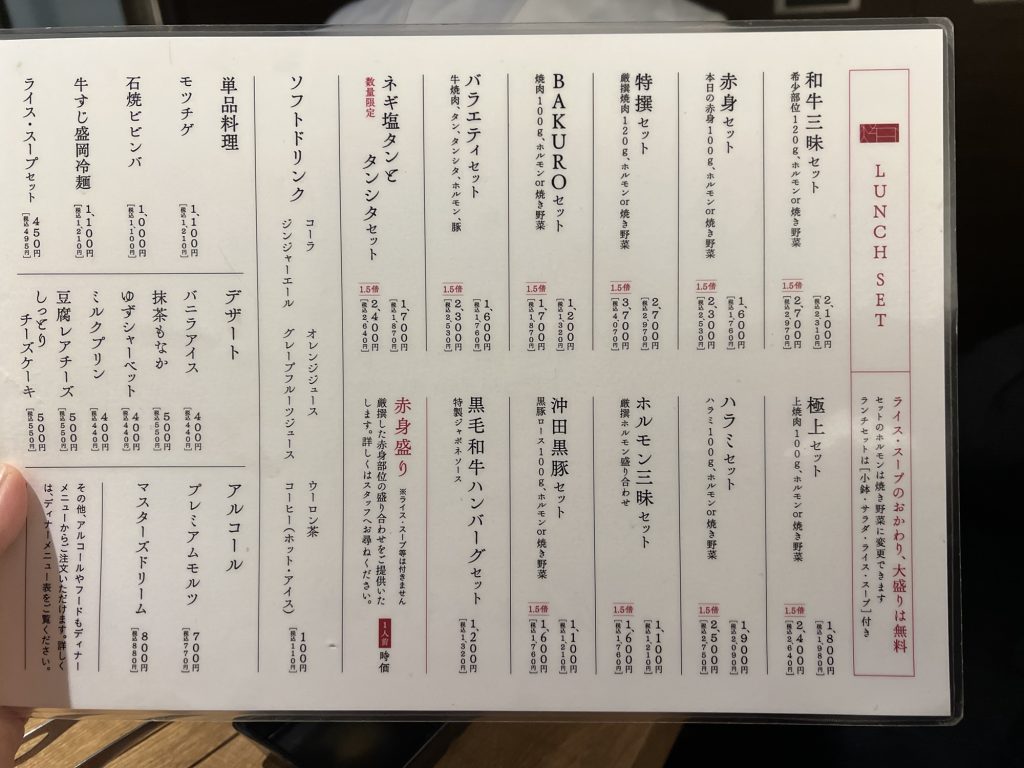 LUNCH SET
ライス・スープのおかわり、大盛りは無料
セットのホルモンは焼き野菜に変更できます
ランチセットは［小鉢・サラダ・ライス・スープ］付き
和牛三昧セット
希少部位120g、ホルモンor焼き野菜
2,100円
［税込2,310円］
1.5倍
2,700円
［税込2,970円］
赤身セット
本日の赤身100g、ホルモンor焼き野菜
1,600円
［税込1,760円］
1.5倍
2,300円
［税込2,530円］
特撰セット
厳撰焼肉120g、ホルモンor焼き野菜
2,700円
［税込2,970円］
1.5倍
3,700円
［税込4,070円］
BAKUROセット
焼肉100g、ホルモンor焼き野菜
1,200円
［税込1,320円］
1.5倍
1,700円
［税込1,870円］
バラエティセット
牛焼肉、タン、タンシタ、ホルモン、豚
1,600円
［税込1,760円］
1.5倍
2,300円
［税込2,530円］
ネギ塩タンと
タンシタセット
数量限定
1,700円
［税込1,870円］
1.5倍
2,400円
［税込2,640円］
極上セット
上焼肉100g、ホルモンor焼き野菜
1,800円
［税込1,980円］
1.5倍
2,400円
［税込2,640円］
ハラミセット
ハラミ100g、ホルモンor焼き野菜
1,900円
［税込2,090円］
1.5倍
2,500円
［税込2,750円］
ホルモン三昧セット
厳撰ホルモン盛り合わせ
1,100円
［税込1,210円］
1.5倍
1,600円
［税込1,760円］
沖田黒豚セット
黒豚ロース100g、ホルモンor焼き野菜
1,100円
［税込1,210円］
1.5倍
1,600円
［税込1,760円］
黒毛和牛ハンバーグセット
特製ジャポネソース
1,200円
［税込1,320円］
赤身盛り
※ライス・スープ等は付きません
厳撰した赤身部位の盛り合わせをご提供いた
します。詳しくはスタッフへお尋ねください。
1人前 時価
ソフトドリンク
コーラ
オレンジジュース
ウーロン茶
ジンジャーエール
グレープフルーツジュース
コーヒー（ホット・アイス）
100円
［税込110円］
単品料理
モツチゲ
1,100円
［税込1,210円］
石焼ビビンバ
1,000円
［税込1,100円］
牛すじ盛岡冷麺
1,100円
［税込1,210円］
ライス・スープセット
450円
［税込495円］
デザート
バニラアイス
400円
［税込440円］
抹茶もなか
500円
［税込550円］
ゆずシャーベット
400円
［税込440円］
ミルクプリン
400円
［税込440円］
豆腐レアチーズ
500円
［税込550円］
しっとり
チーズケーキ
500円
［税込550円］
アルコール
プレミアムモルツ
700円
［税込770円］
マスターズドリーム
800円
［税込880円］
その他、アルコールやフードもディナー
メニューからご注文いただけます。詳しく
は、ディナーメニュー表をご覧ください。